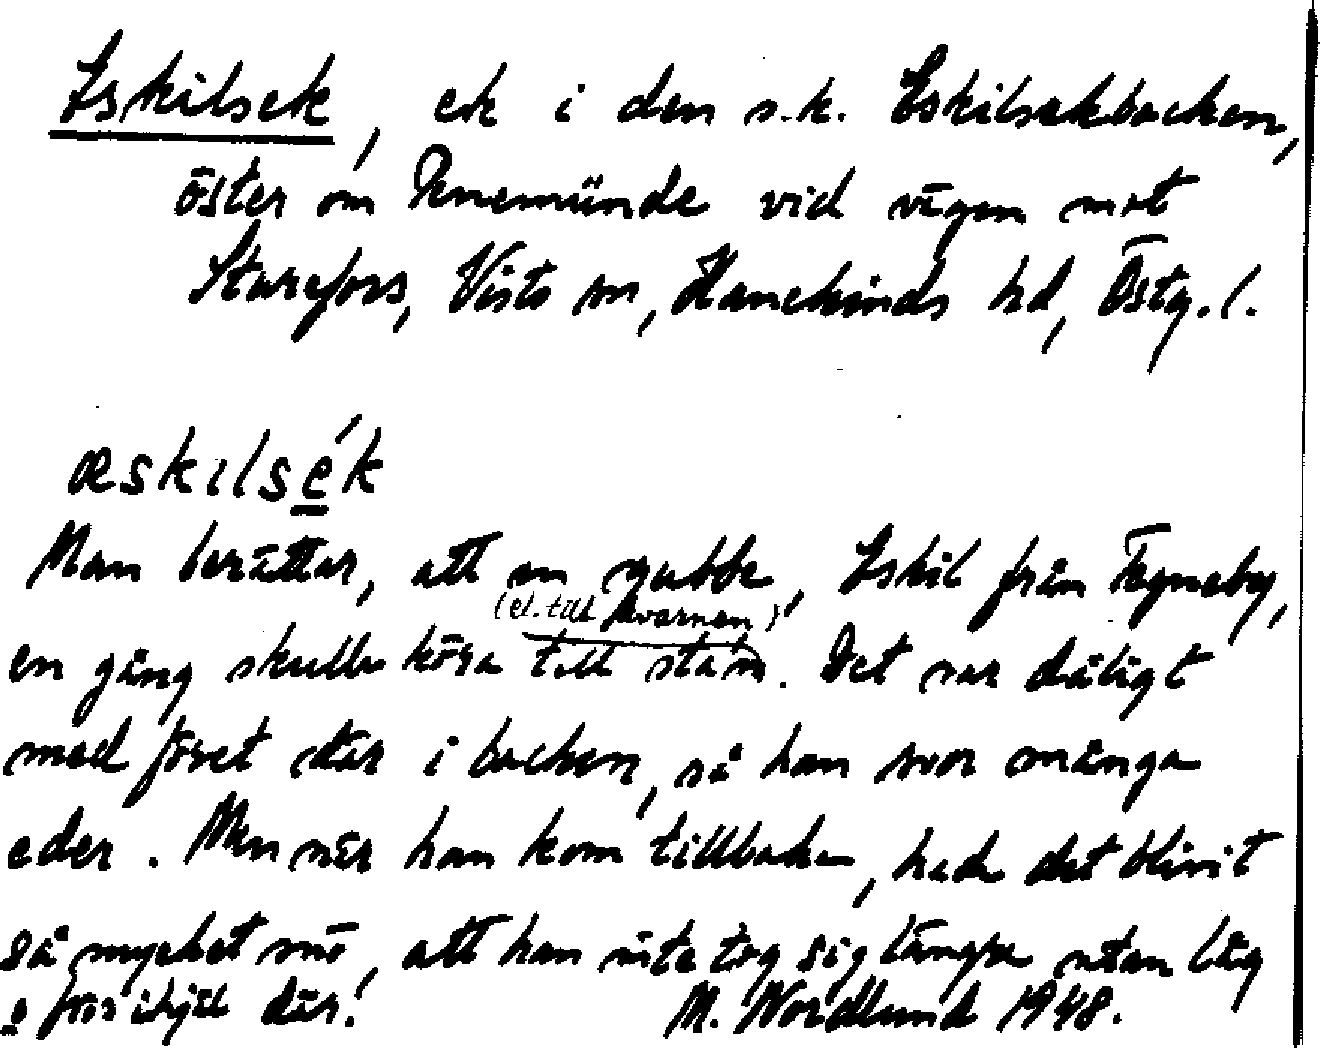 Eskilsek, ek i den s.k. Eskilsekbacken,
öster om Penemünde vid vägen mot
Starefors, Visto sn, Hanekinds hd, Östg.l.
æskılsék
Man berättar, att en gubbe, Eskil från Tegneby,
(el. till kvarnen)
en gång skulle köra till stan. Det var dåligt
med föret där i backen, så han svor många
eder. Men när han kom tillbaka, hade det blivit
så mycket snö, att han inte tog sig längre utan låg
o frös ihjäl där! M. Nordlund 1948.